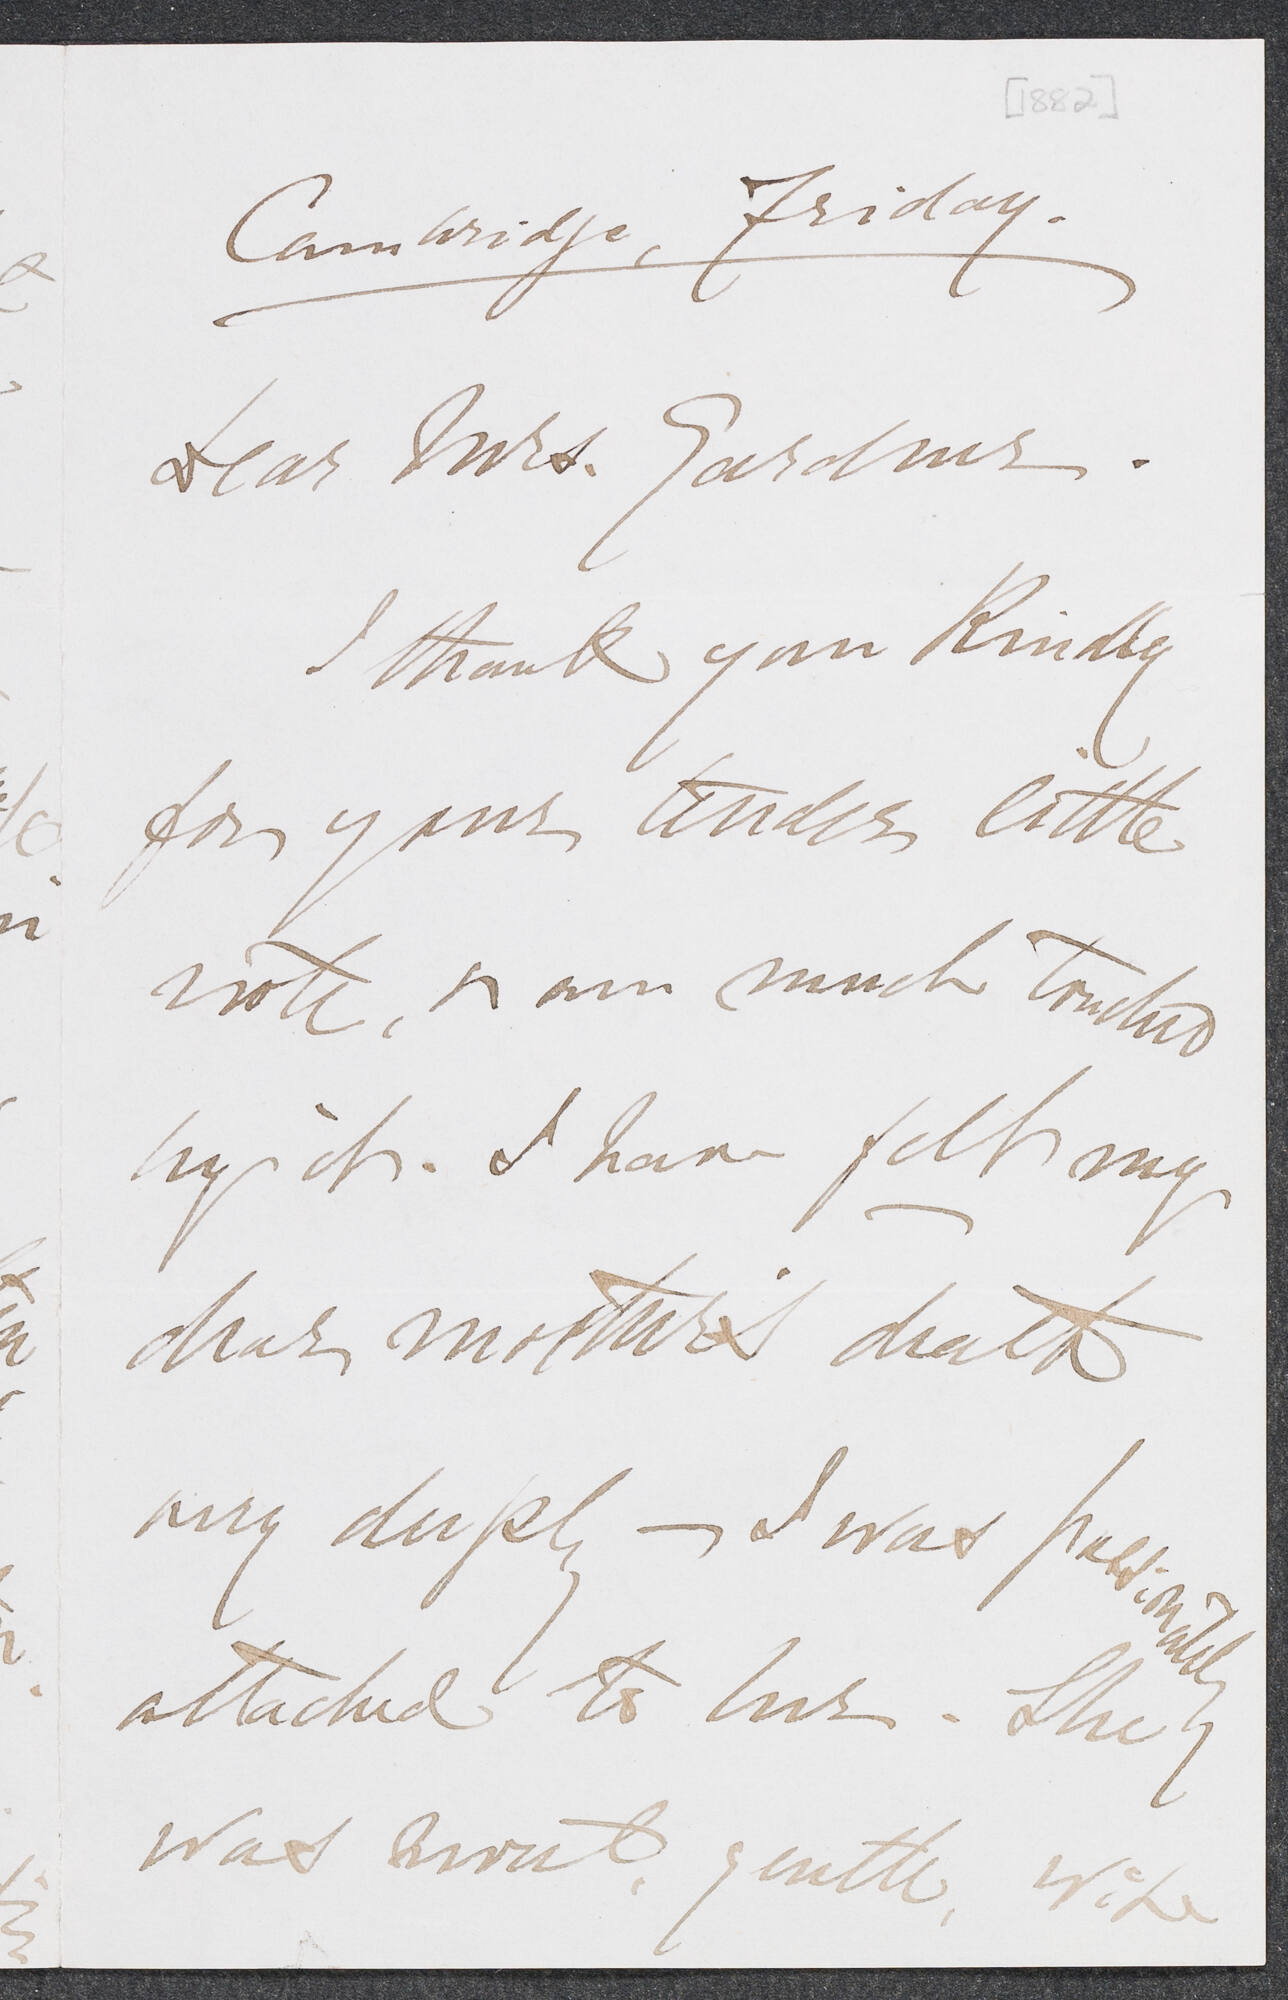 [1882]
Cambridge, Friday.
Dear Mrs. Gardner.
I thank you kindly
for your tender little
note, & am much touched
by it. I have felt my
dear mother's death
very deeply — I was passionately
attached to her. She
was sweet, gentle, wise